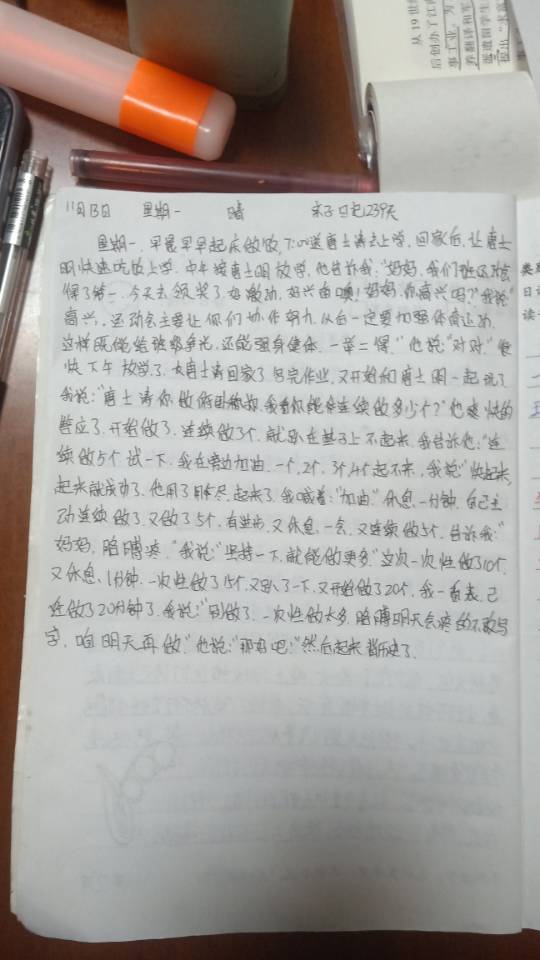 从19世纪
后创办了江南
事工业，为了
养翻译和军
派遣留学生
提出“求富
11月13日 星期一 晴 亲子日记1239天
星期一，早晨早早起床做饭，7:00送勇士涛去上学，回家后，让勇士
明快速吃饭上学，中午接勇士明放学，他告诉我：“妈妈，我们班运动会
得了第一，今天去领奖了好激动，好兴奋噢！妈妈，你高兴吗？”我说：“
高兴，运动会主要让你们协作努力，从白一定要加强体育运动，
这样既能给班级争光，还能强身健体，一举二得。”他说：“对对。”很
快下午放学了，勇士涛回家了写完作业，又开始和勇士明一起玩了
我说：“勇士涛你做俯卧撑，我看你能连续做多少个？”他爽快的
答应了，开始做了，连续做了3个，就趴在垫子上不起来，我告诉他：“连
续做5个试一下，我在旁边加油，一个，2个，3个，4个起不来，我说：“快起来，
起来就成功了，他用了用尽，起来了，我喊着：“加油。”休息一分钟，自己主
动连续做了，又做了5个，有进步，又休息一会，又连续做5个，告诉我：“
妈妈，胳膊疼。”我说：“坚持一下，就能做更多。”这次一次性做了10个，
又休息1分钟，一次性做了15个，又趴了一下，又开始做了20个，我一看表，已
经做了20分钟了，我说：“别做了，一次性做太多，胳膊明天会疼的不敢写
字，咱明天再做。”他说：“那好吧：”然后起来背历史了.